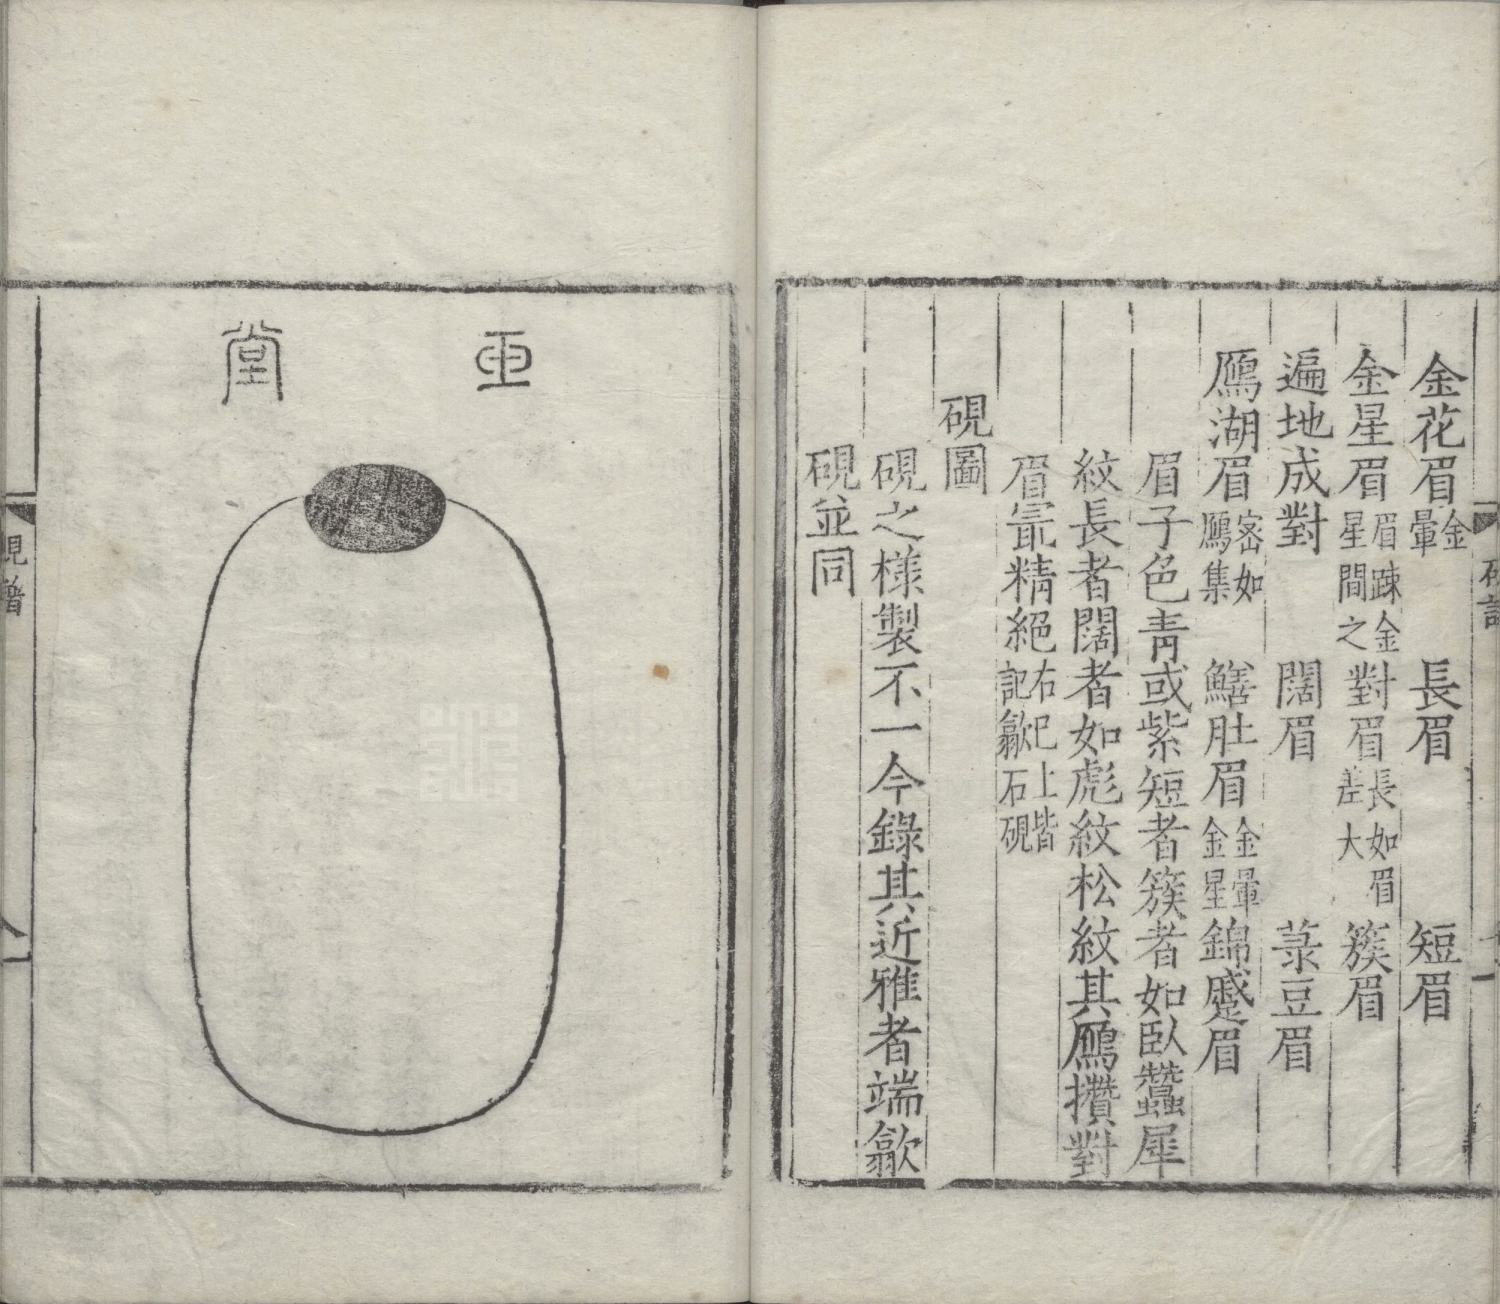 金花眉金暈　長眉　短眉
金星眉眉疎金星間之對眉長如眉差大簇眉
遍地成對　闊眉　菉豆眉
鴈湖眉密如鴈集　鱔肚眉金暈金星錦蹙眉
眉子色青或紫短者簇者如臥蠶犀
紋長者闊者如彪紋松紋其鴈攢對
眉㝡精絕右巳上皆記歙石硯
硯圖
硯之樣製不一今錄其近雅者端歙
硯並同
玉堂
硯譜